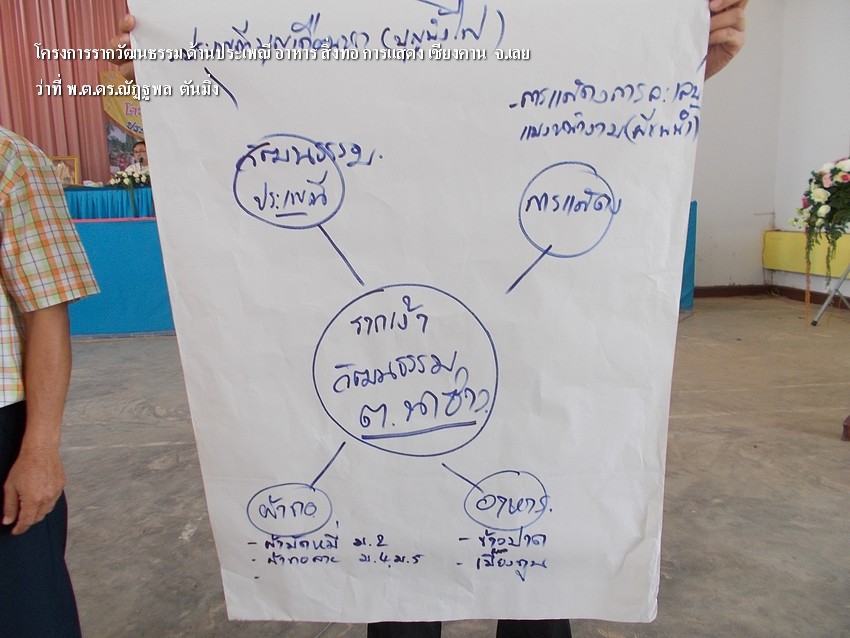 ประเพณีบุญเดือนหก (บุญบั้งไฟ)
โครงการรากวัฒนธรรม ด้านประเพณี อาหาร สิ่งทอ การแสดง เชียงคาน จ.เลย
ว่าที่ พ.ต.ดร.ณัฏฐพล ตันมิ่ง
- การแสดงการละเล่น
แมงหน้างาม (ผีขนน้ำ)
วัฒนธรรม
ประเพณี
การแสดง
รากเง้า
วัฒนธรรม
ต. นาซ่าว
ผ้าทอ
- ผ้ามัดหมี่ ม. 2
- ผ้าทอลาย ม. 4, ม. 5
-
อาหาร
- ข้าวปาด
- เมี่ยงคูน